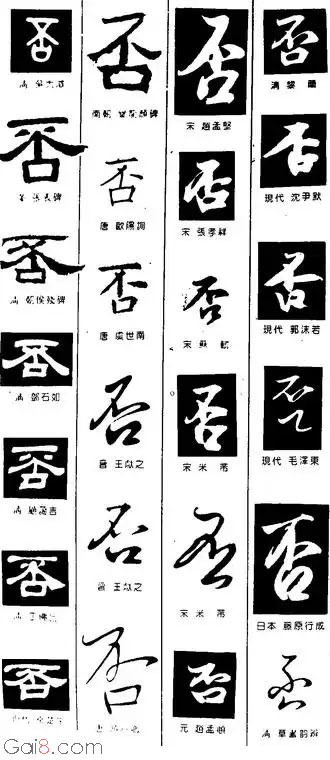 否
否
張表碑
否
朝侯殘碑
否
清 鄧石如
否
清 顧藹吉
否
否
否
南朝 爨龍顏碑
否
唐 歐陽詢
否
唐 虞世南
否
晉 王獻之
否
晉 王獻之
否
否
宋 趙孟堅
否
宋 張孝祥
否
宋 蘇軾
否
宋 米芾
否
宋 米芾
否
元 趙孟頫
否
清 黎簡
否
現代 沈尹默
否
現代 郭沫若
否
現代 毛澤東
否
日本 藤原行成
否
清 草書韵辨
Gai8.com